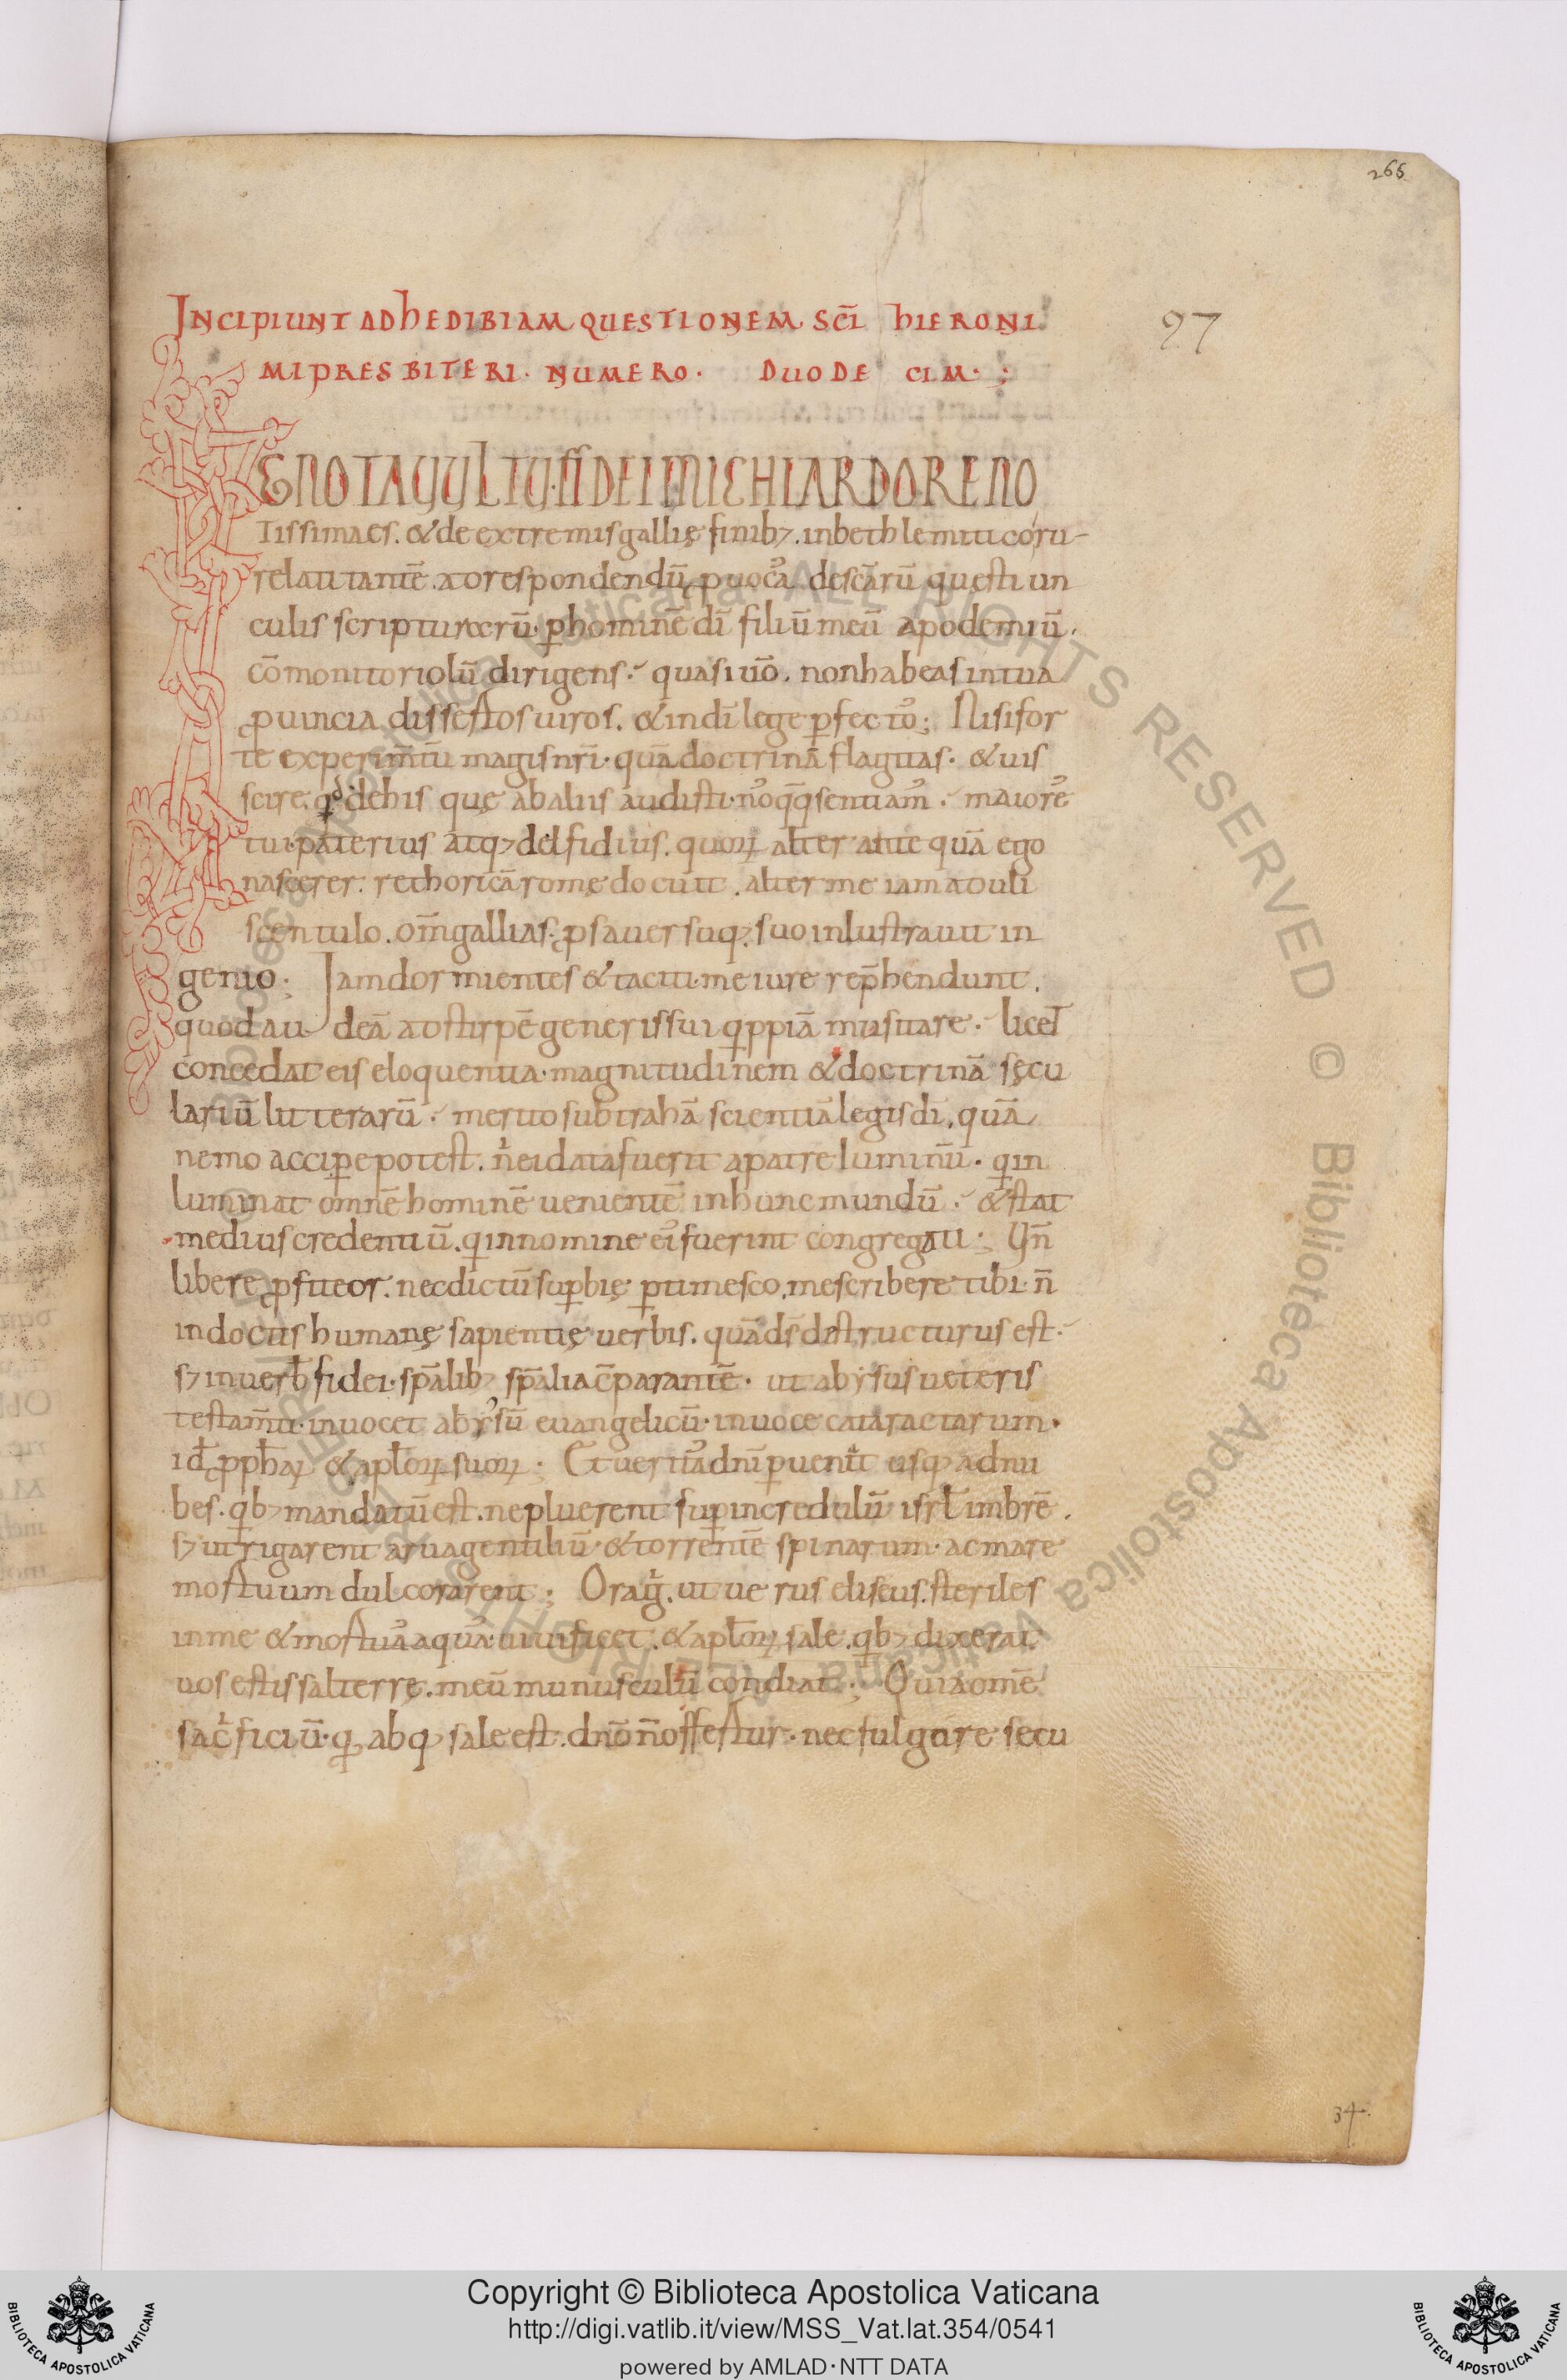 266
INCIPIUNT AD HEDIBIAM QUESTIONEM SCI HIERONI
MI PRESBITERI. NUMERO. DUODECIM.
97
IGNOTA UULTU. FIDEI MICHI ARDORE NO
tissima es. & de extremis gallię finib;. in bethlemiti co ru
re latitantē. ad respondendū ꝓuocas de scārū questiun
culis scripturarū. ꝑ hominē dī filiū meū apodemiū.
cōmonitoriolū dirigens. quasi uō. non habeas in tua
ꝓuincia dissertos uiros. & in dī lege ꝑfectos; Nisi for
te experimtū magis nr̄i. quā doctrinā flagitas. & uis
scire. qd de his quę ab aliis audisti. nos qq sentiam. maiores
tui. paterius atq; delfidius. quoꝝ alter ante quā ego
nascerer. rethoricā romę docuit. alter me iam aduli
scentulo. om̄ gallias. ꝓsa uersuq; suo inlustrauit in
genio; Iam dormientes & taciti. me iure rep̄hendunt.
quod audeā ad stirpē generis sui qppiā musitare. licet
concedat eis eloquentia. magnitudinem & doctrinā sęcu
lariū litterarū. merito subtrahā scientiā legis dī. quā
nemo accipe potest. n̄ ei data fuerit a patre luminū. q in
luminat omnē hominē uenientē in hunc mundū. & stat
medius credentiū. q in nomine ei fuerint congregati; Un̄
libere ꝓfiteor. nec dictū suꝑbię ꝑtimesco. me scribere tibi. n̄
in doctis humanę sapientię uerbis. quā ds̄ destructurus est.
s; in uerb fidei. sp̄alib; sp̄alia cparantē. ut abysus ueteris
testam̄ti. inuocet abysū euangelicū. in uoce cataractarum.
id ꝓphaꝝ & aploꝝ suoꝝ. Et ueritas dnī ꝑuenit usq; ad nu
bes. qb; mandatū est. ne pluerent sup incredulū isrl imbrē.
s; ut rigarent arua gentiliū. & torrentē spinarum. ac mare
mortuum dulcorarent; Ora g. ut uerus eliseus. steriles
in me & mortuas aquas uiuificet. & aploꝝ sale. qb; dixerat.
uos estis sal terrę. meū munusculū condiat; Quia omē
sacficiū. q absq; sale est. dnō n̄ offertur. nec fulgore secu
34.
Copyright © Biblioteca Apostolica Vaticana
http://digi.vatlib.it/view/MSS_Vat.lat.354/0541
powered by AMLAD・NTT DATA
BIBLIOTECA APOSTOLICA VATICANA
BIBLIOTECA APOSTOLICA VATICANA